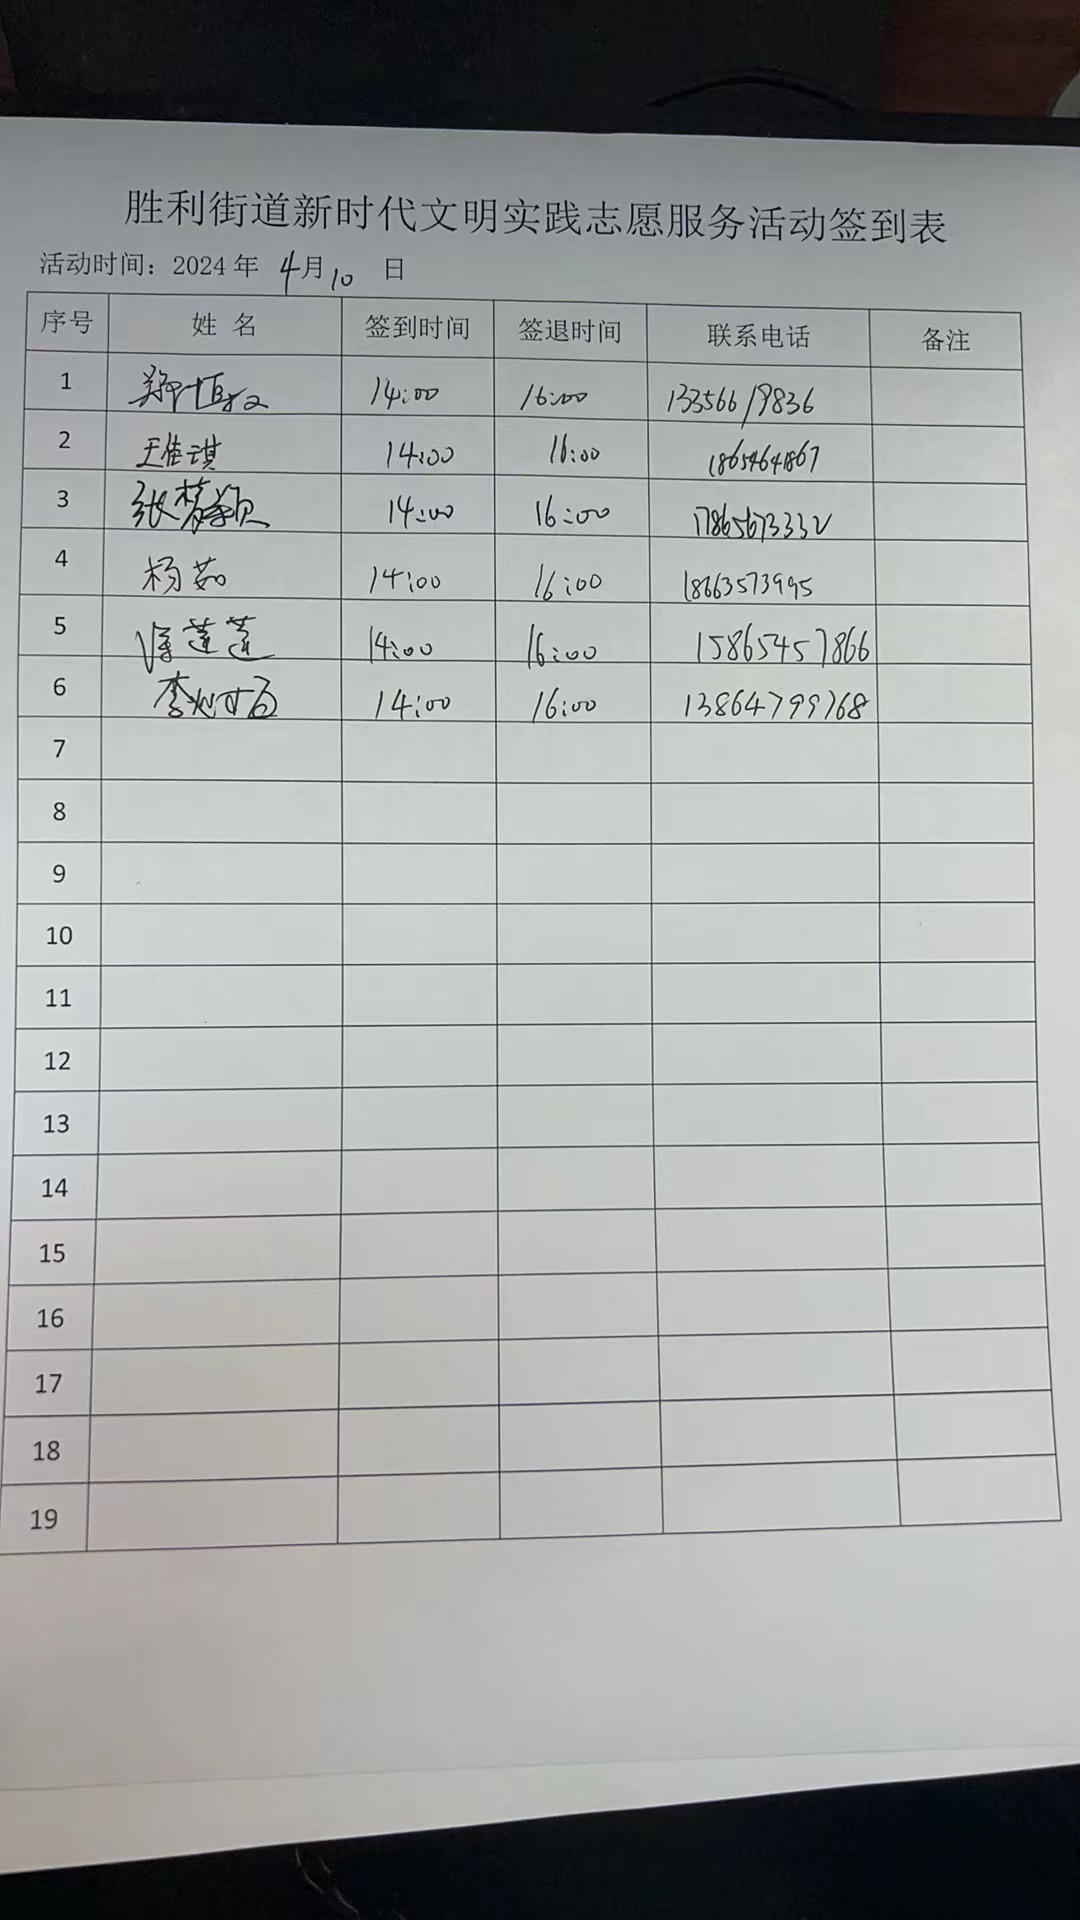 胜利街道新时代文明实践志愿服务活动签到表
活动时间：2024 年 4月10 日
序号 姓 名 签到时间 签退时间 联系电话 备注
1 14:00 16:00 13356619836
2 王佳琪 14:00 16:00 18654641867
3 张梦颖 14:00 16:00 17865673332
4 杨茹 14:00 16:00 18663573995
5 莲莲 14:00 16:00 15865457866
6 李 14:00 16:00 13864799768
7
8
9
10
11
12
13
14
15
16
17
18
19